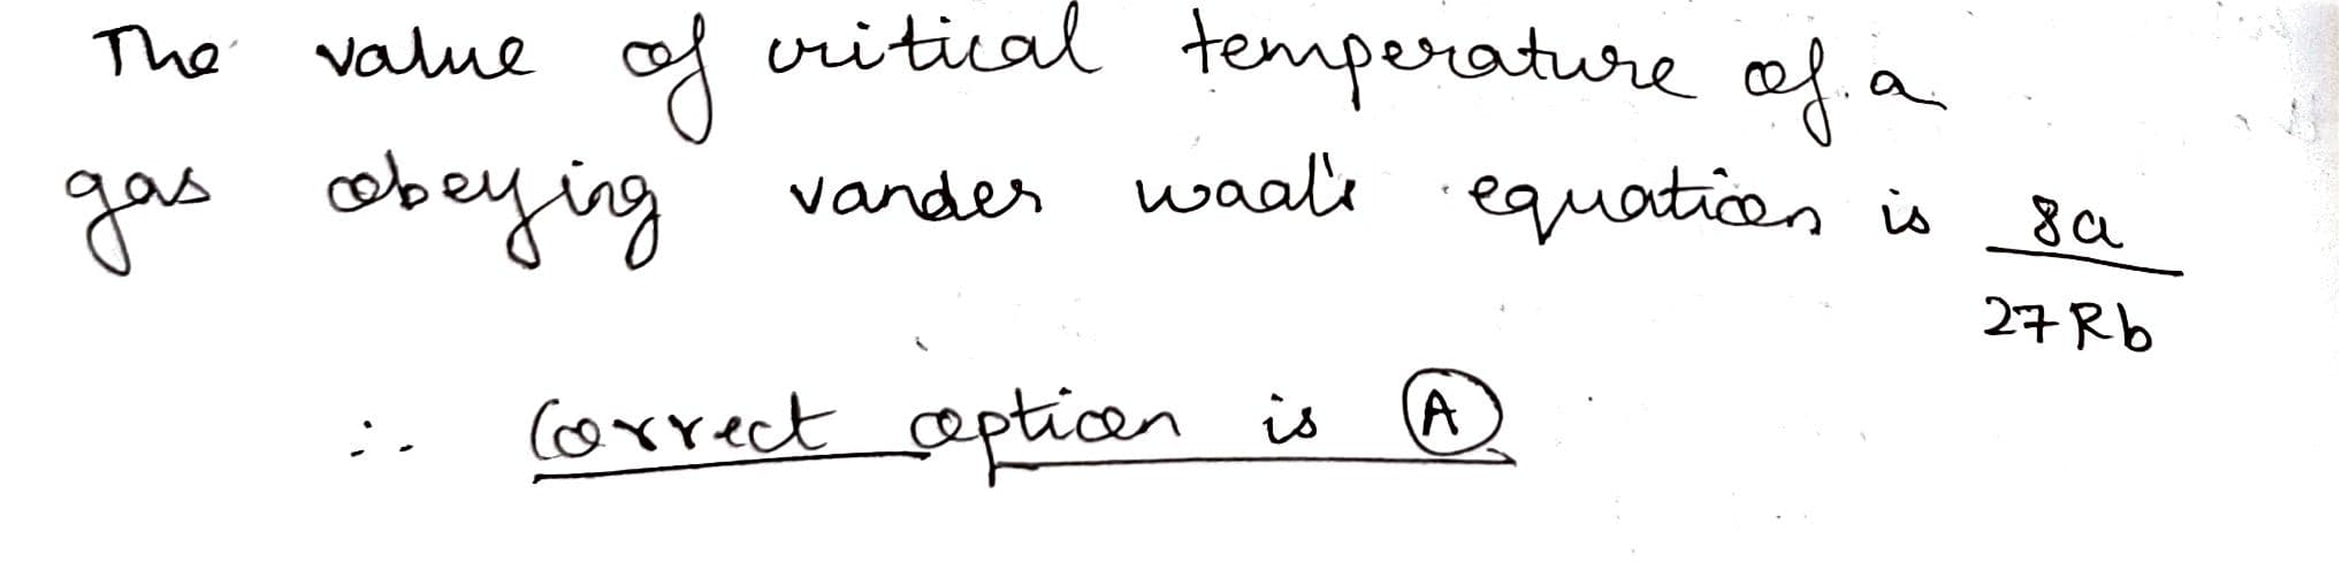 The value of critical temperature of a
gas obeying vander waal's equation is 8a
27Rb
∴ Correct option is A